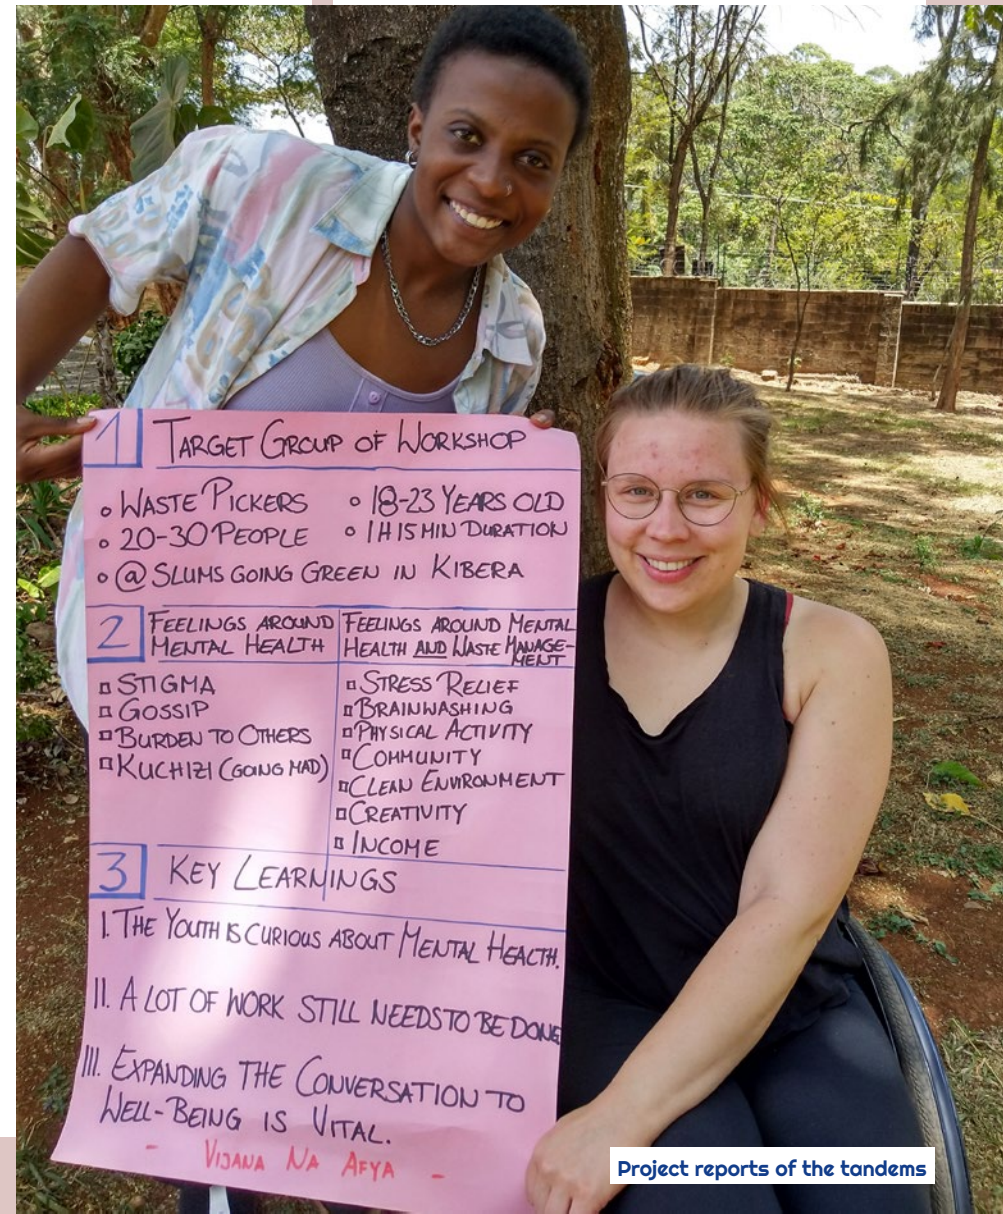 1 TARGET GROUP OF WORKSHOP
WASTE PICKERS
20-30 PEOPLE
18-23 YEARS OLD
1H 15 MIN DURATION
@ SLUMS GOING GREEN IN KIBERA
2 FEELINGS AROUND
MENTAL HEALTH
STIGMA
GOSSIP
BURDEN TO OTHERS
KUCHIZI (GOING MAD)
FEELINGS AROUND MENTAL
HEALTH AND WASTE MANAGE-
MENT
STRESS RELIEF
BRAINWASHING
PHYSICAL ACTIVITY
COMMUNITY
CLEAN ENVIRONMENT
CREATIVITY
INCOME
3 KEY LEARNINGS
I. THE YOUTH IS CURIOUS ABOUT MENTAL HEALTH.
II. A LOT OF WORK STILL NEEDS TO BE DONE
III. EXPANDING THE CONVERSATION TO
WELL-BEING IS VITAL.
- VIJANA NA AFYA -
Project reports of the tandems